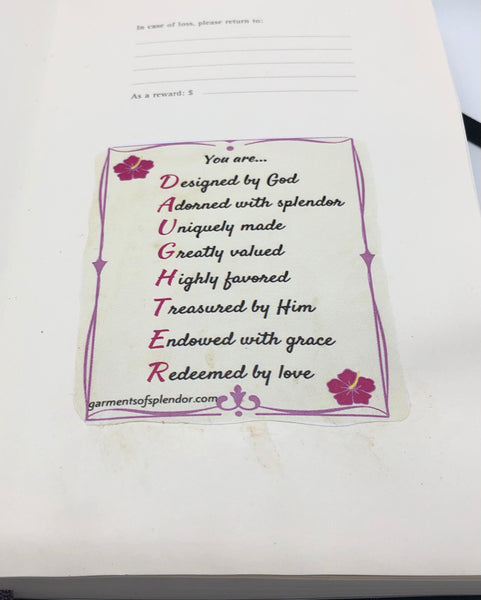 In case of loss, please return to:
As a reward: $
You are...
Designed by God
Adorned with splendor
Uniquely made
Greatly valued
Highly favored
Treasured by Him
Endowed with grace
Redeemed by love
garmentsofsplendor.com